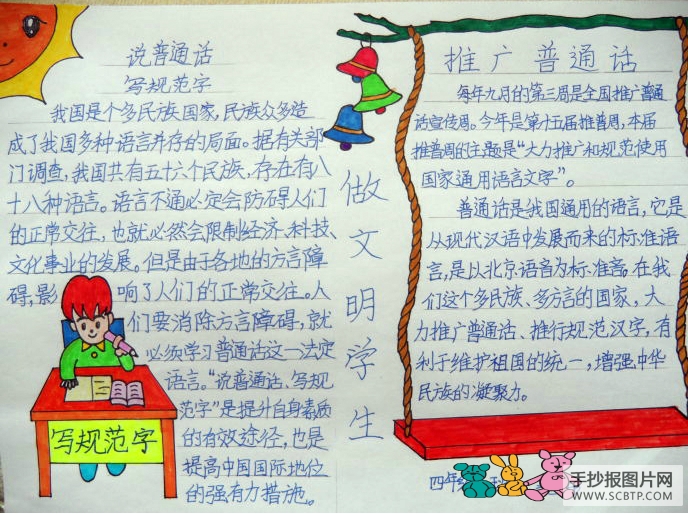 说普通话
写规范字
我国是个多民族国家,民族众多造
成了我国多种语言并存的局面。据有关部
门调查,我国共有五十六个民族,存在有八
十八种语言。语言不通必定会防碍人们
的正常交往,也就必然会限制经济、科技、
文化事业的发展。但是由于各地的方言障
碍,影响了人们的正常交往。人
们要消除方言障碍,就
必须学习普通话这一法定
语言。“说普通话、写规
范字”是提升自身素质
的有效途径,也是
提高中国国际地位
的强有力措施。
写规范字
做文明学生
推广普通话
每年九月的第三周是全国推广普通
话宣传周。今年是第十五届推普周,本届
推普周的主题是“大力推广和规范使用
国家通用语言文字”。
普通话是我国通用的语言,它是
从现代汉语中发展而来的标准语
言,是以北京语音为标准音。在我
们这个多民族、多方言的国家,大
力推广普通话、推行规范汉字,有
利于维护祖国的统一,增强中华
民族的凝聚力。
四年
手抄报图片网
WWW.SCBTP.COM